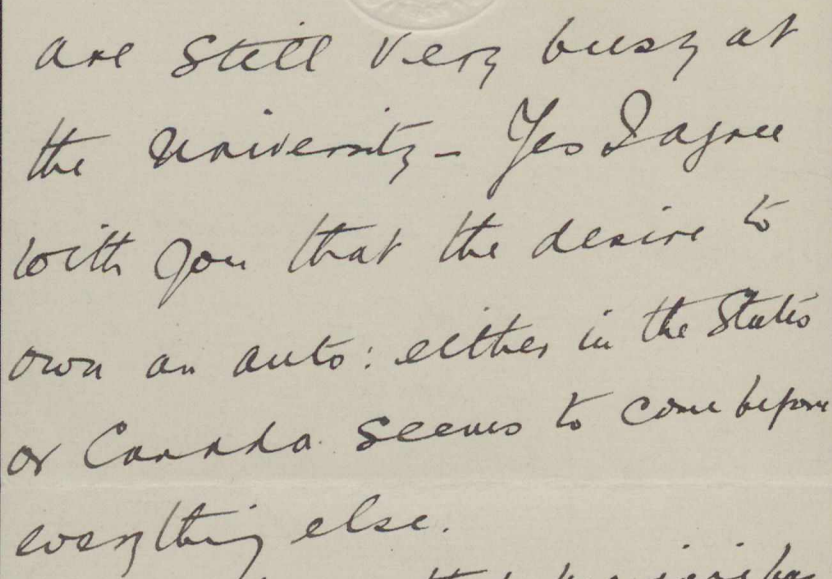 are still very busy at
the University - Yes I agree
with you that the desire to
own an auto: either in the States
or Canada. seems to come before
everything else.